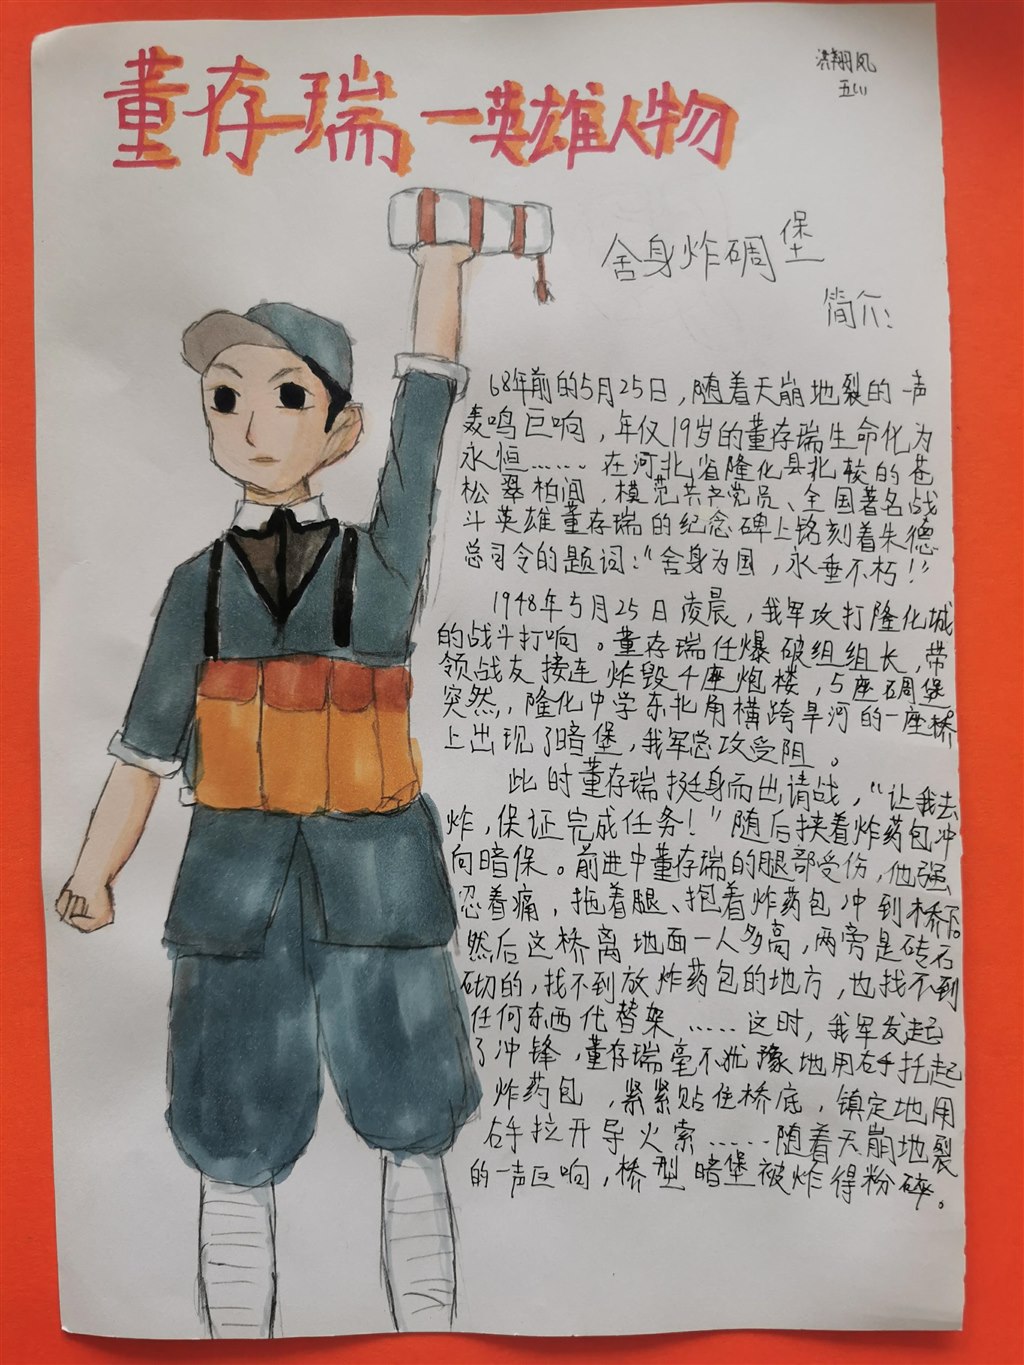 董存瑞一英雄人物
洪翔风
五(1)
舍身炸碉堡
简介:
68年前的5月25日，随着天崩地裂的一声
轰鸣巨响，年仅19岁的董存瑞生命化为
永恒……在河北省隆化县北较的苍
松翠柏间，模范共产党员、全国著名战
斗英雄董存瑞的纪念碑上铭刻着朱德
总司令的题词："舍身为国，永垂不朽！"
1948年5月25日凌晨，我军攻打隆化城
的战斗打响。董存瑞任爆破组组长，带
领战友接连炸毁4座炮楼，5座碉堡
突然，隆化中学东北角横跨旱河的一座桥
上出现了暗堡，我军总攻受阻。
此时董存瑞挺身而出请战，"让我去
炸，保证完成任务！"随后挟着炸药包冲
向暗保。前进中董存瑞的腿部受伤，他强
忍着痛，拖着腿、抱着炸药包冲到桥下。
然后这桥离地面一人多高，两旁是砖石
砌的，找不到放炸药包的地方，也找不到
任何东西代替架……这时，我军发起
了冲锋，董存瑞毫不犹豫地用右手托起
炸药包，紧紧贴住桥底，镇定地用
右手拉开导火索……随着天崩地裂
的一声巨响，桥型暗堡被炸得粉碎。